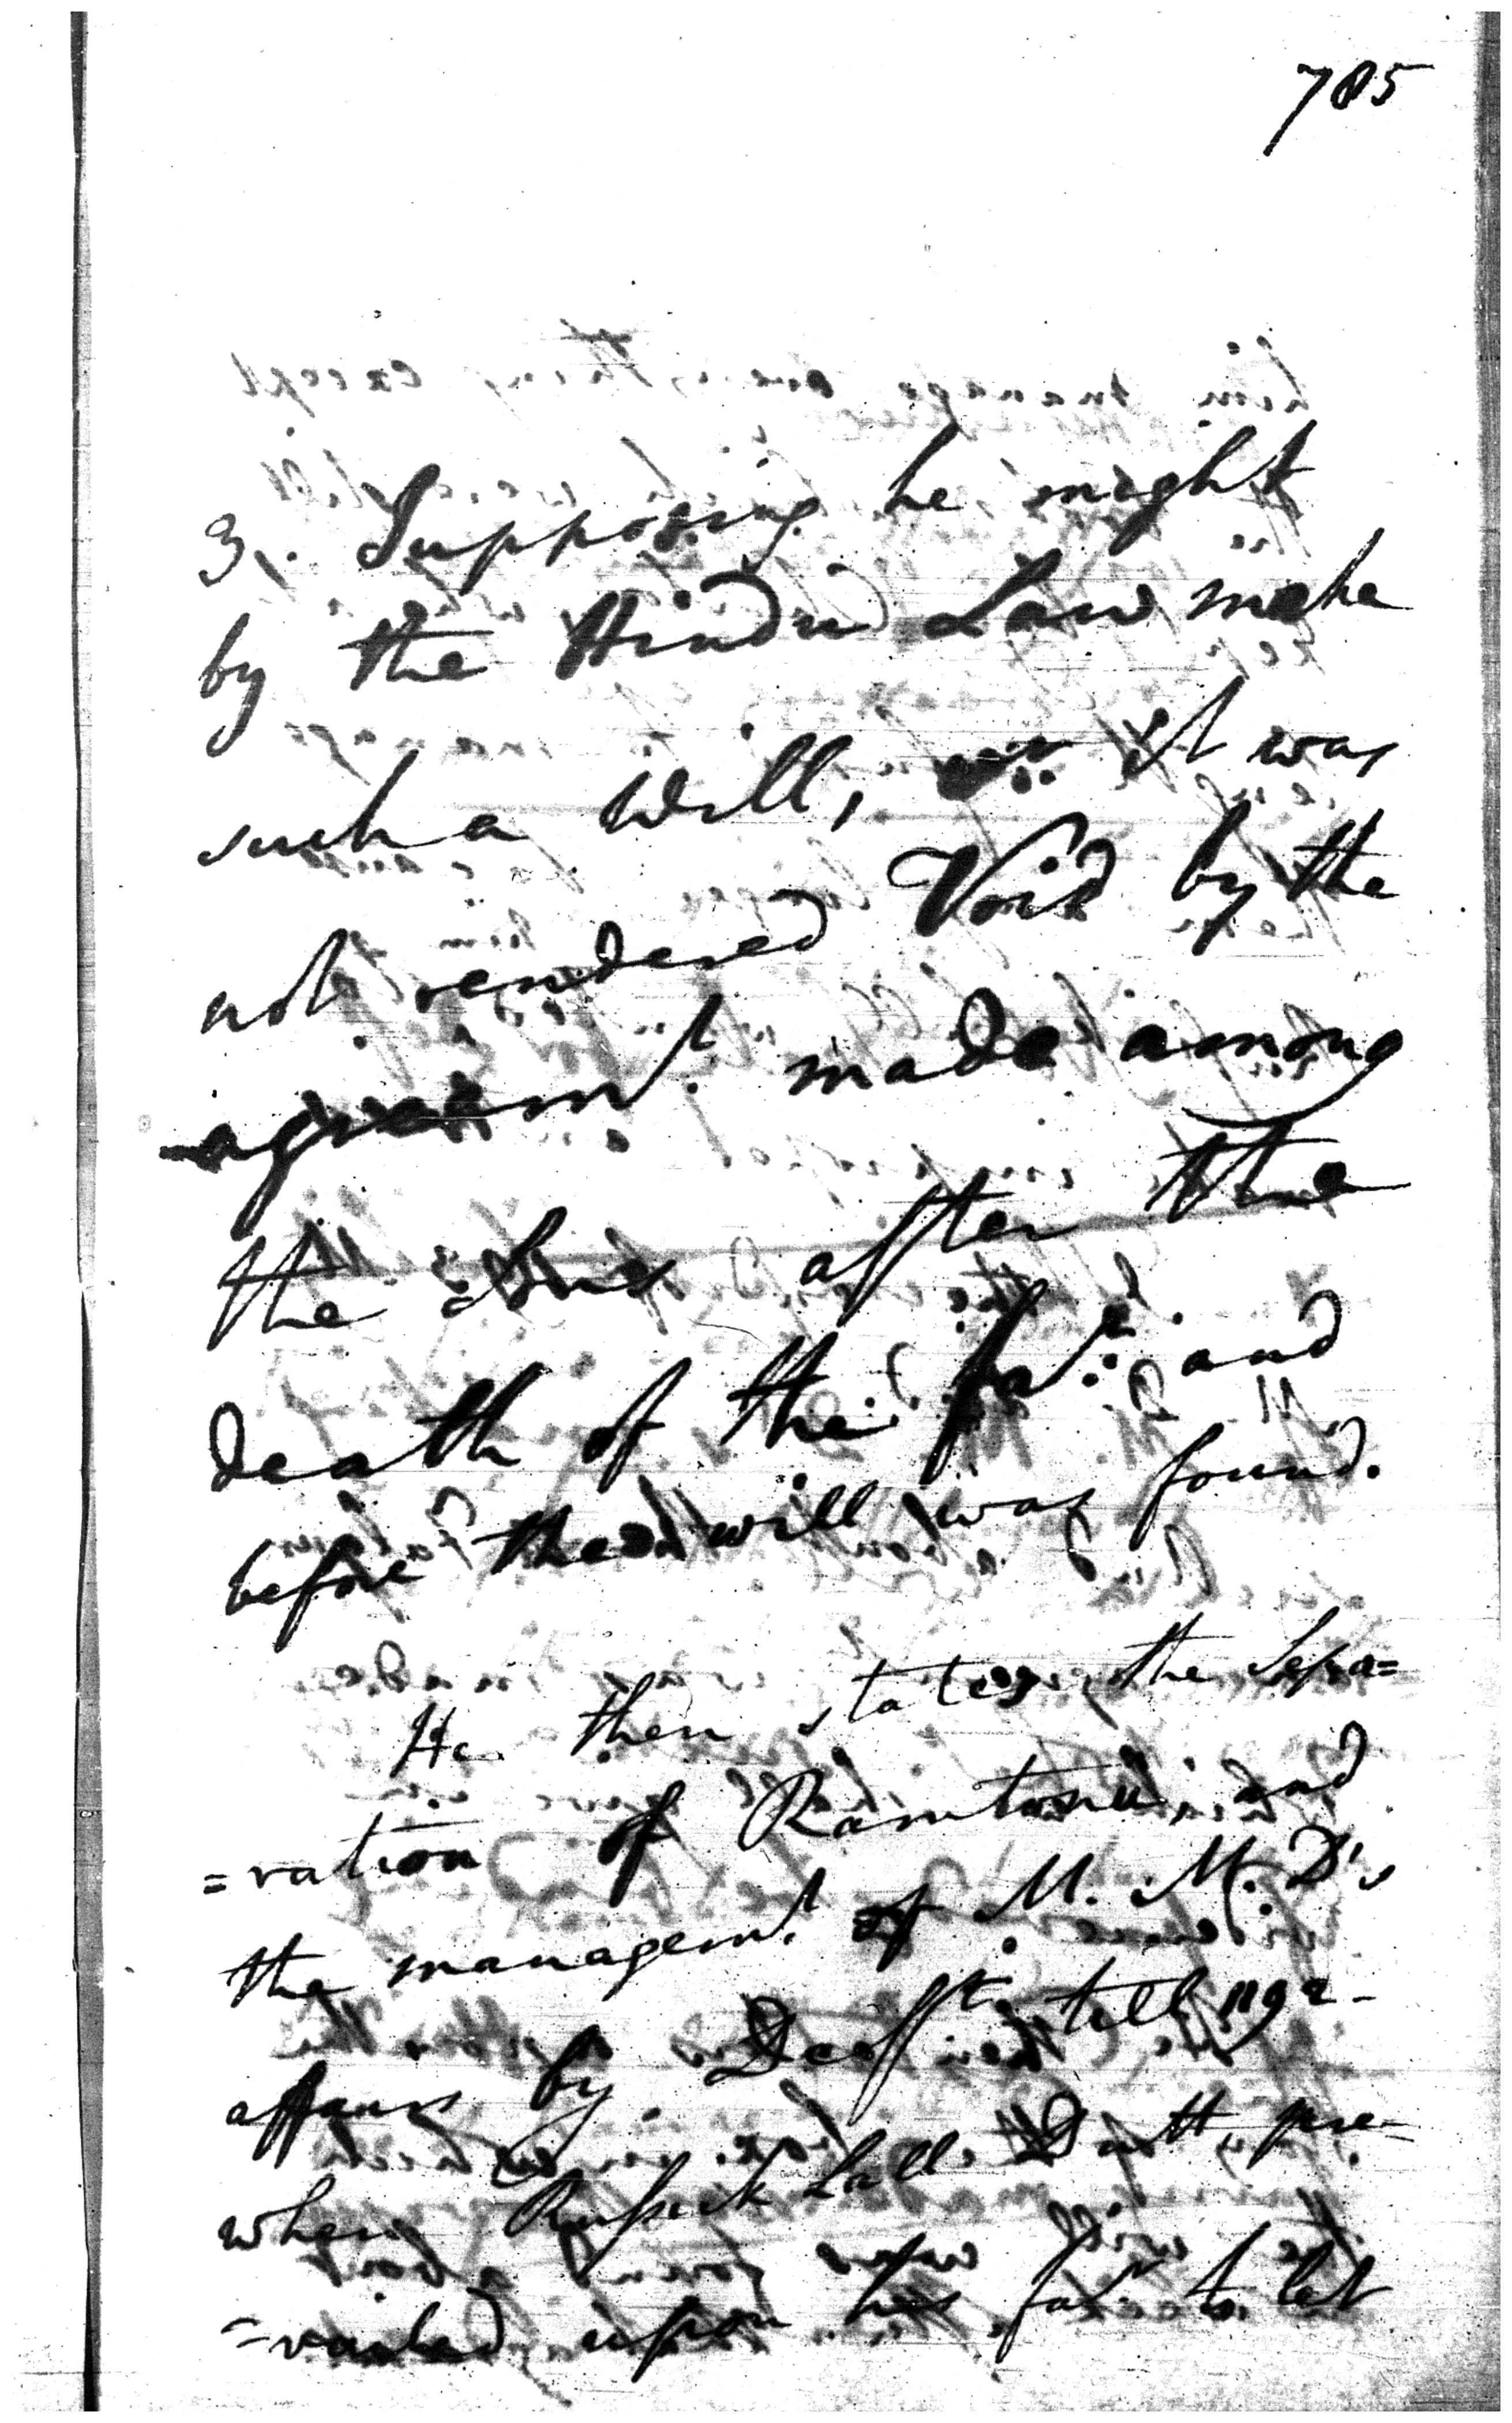 785
3, . Supposing he might
by the Hindu Law make
such a Will, it was
not rendered Void by the
agreemt. made among
the Sons after the
death of the far. and
before the will was found.
He then states, the Sepa=
=ration of Ramtonu, and
the managemt. of M. M. D's
affairs by Defft. till 1192-
when Russick Lall Dutt, pre-
=vailed upon his far to let